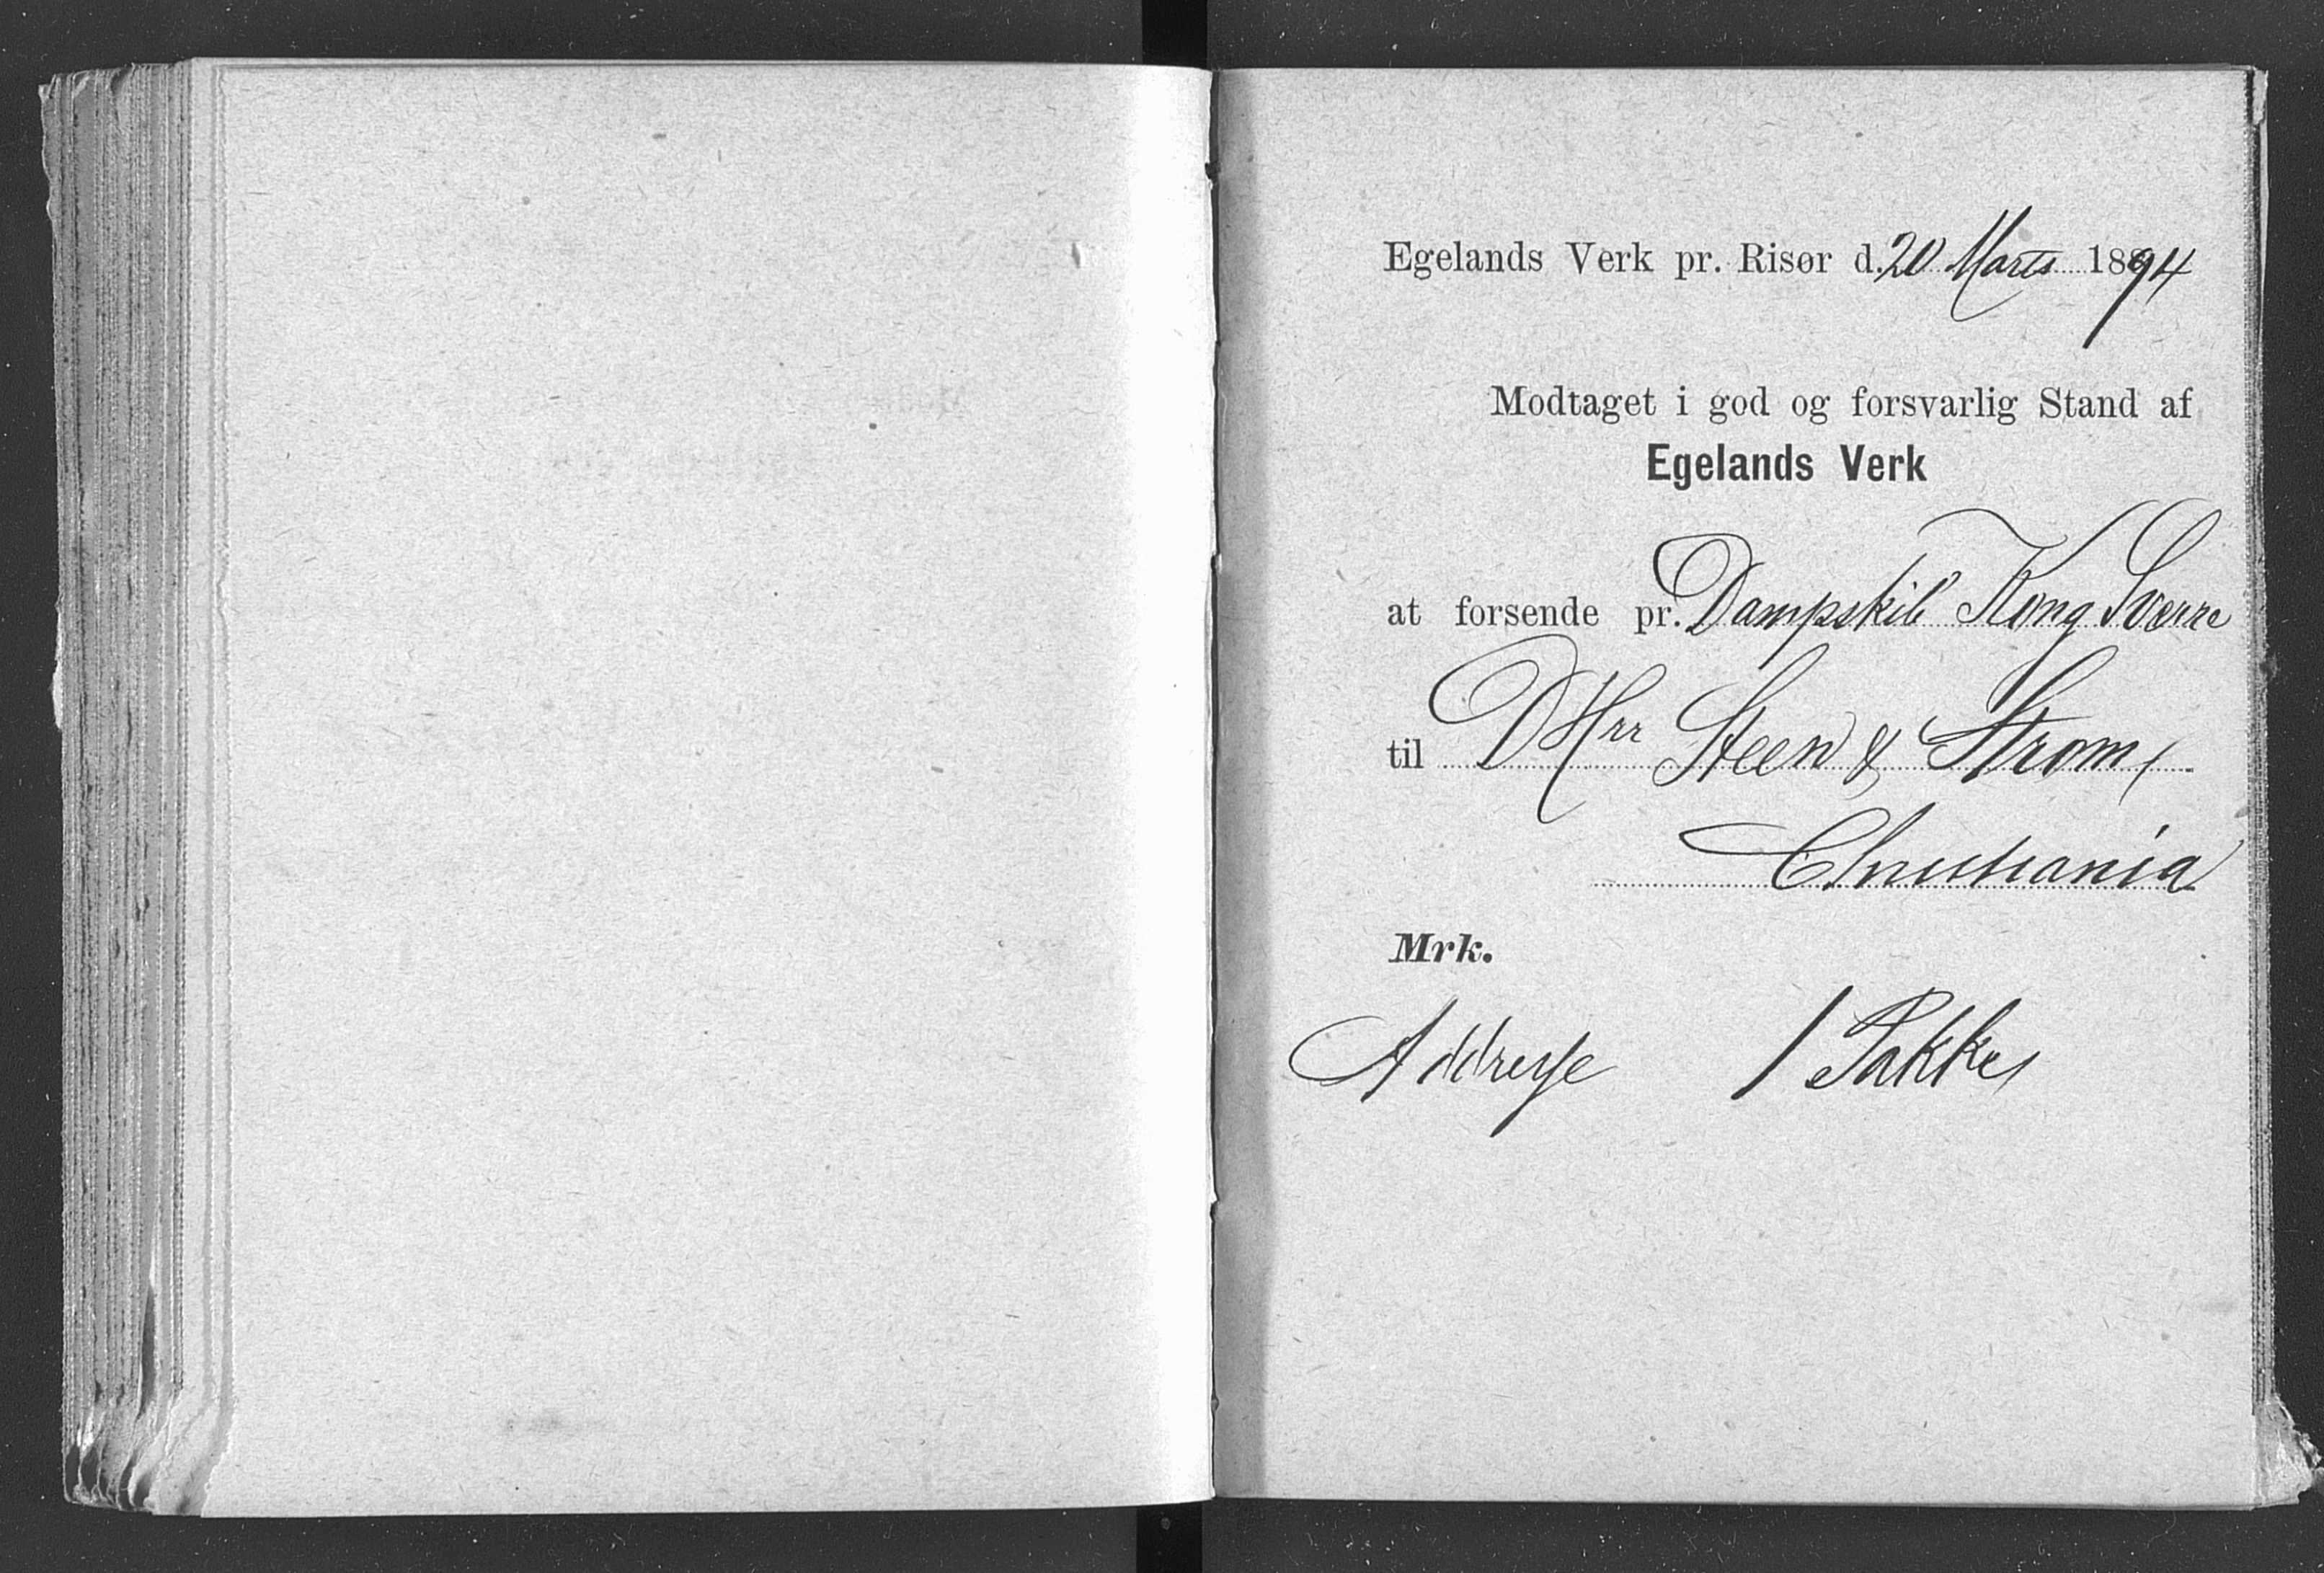 Egelands Verk pr. Risør d. 20 Marts 1894
Modtaget i god og forsvarlig Stand af
Egelands Verk
at forsende pr. Dampskib Kong Sverre
til DHrr Steen & Strøm
Christiania
Mrk.
Addresse 1 Pakke